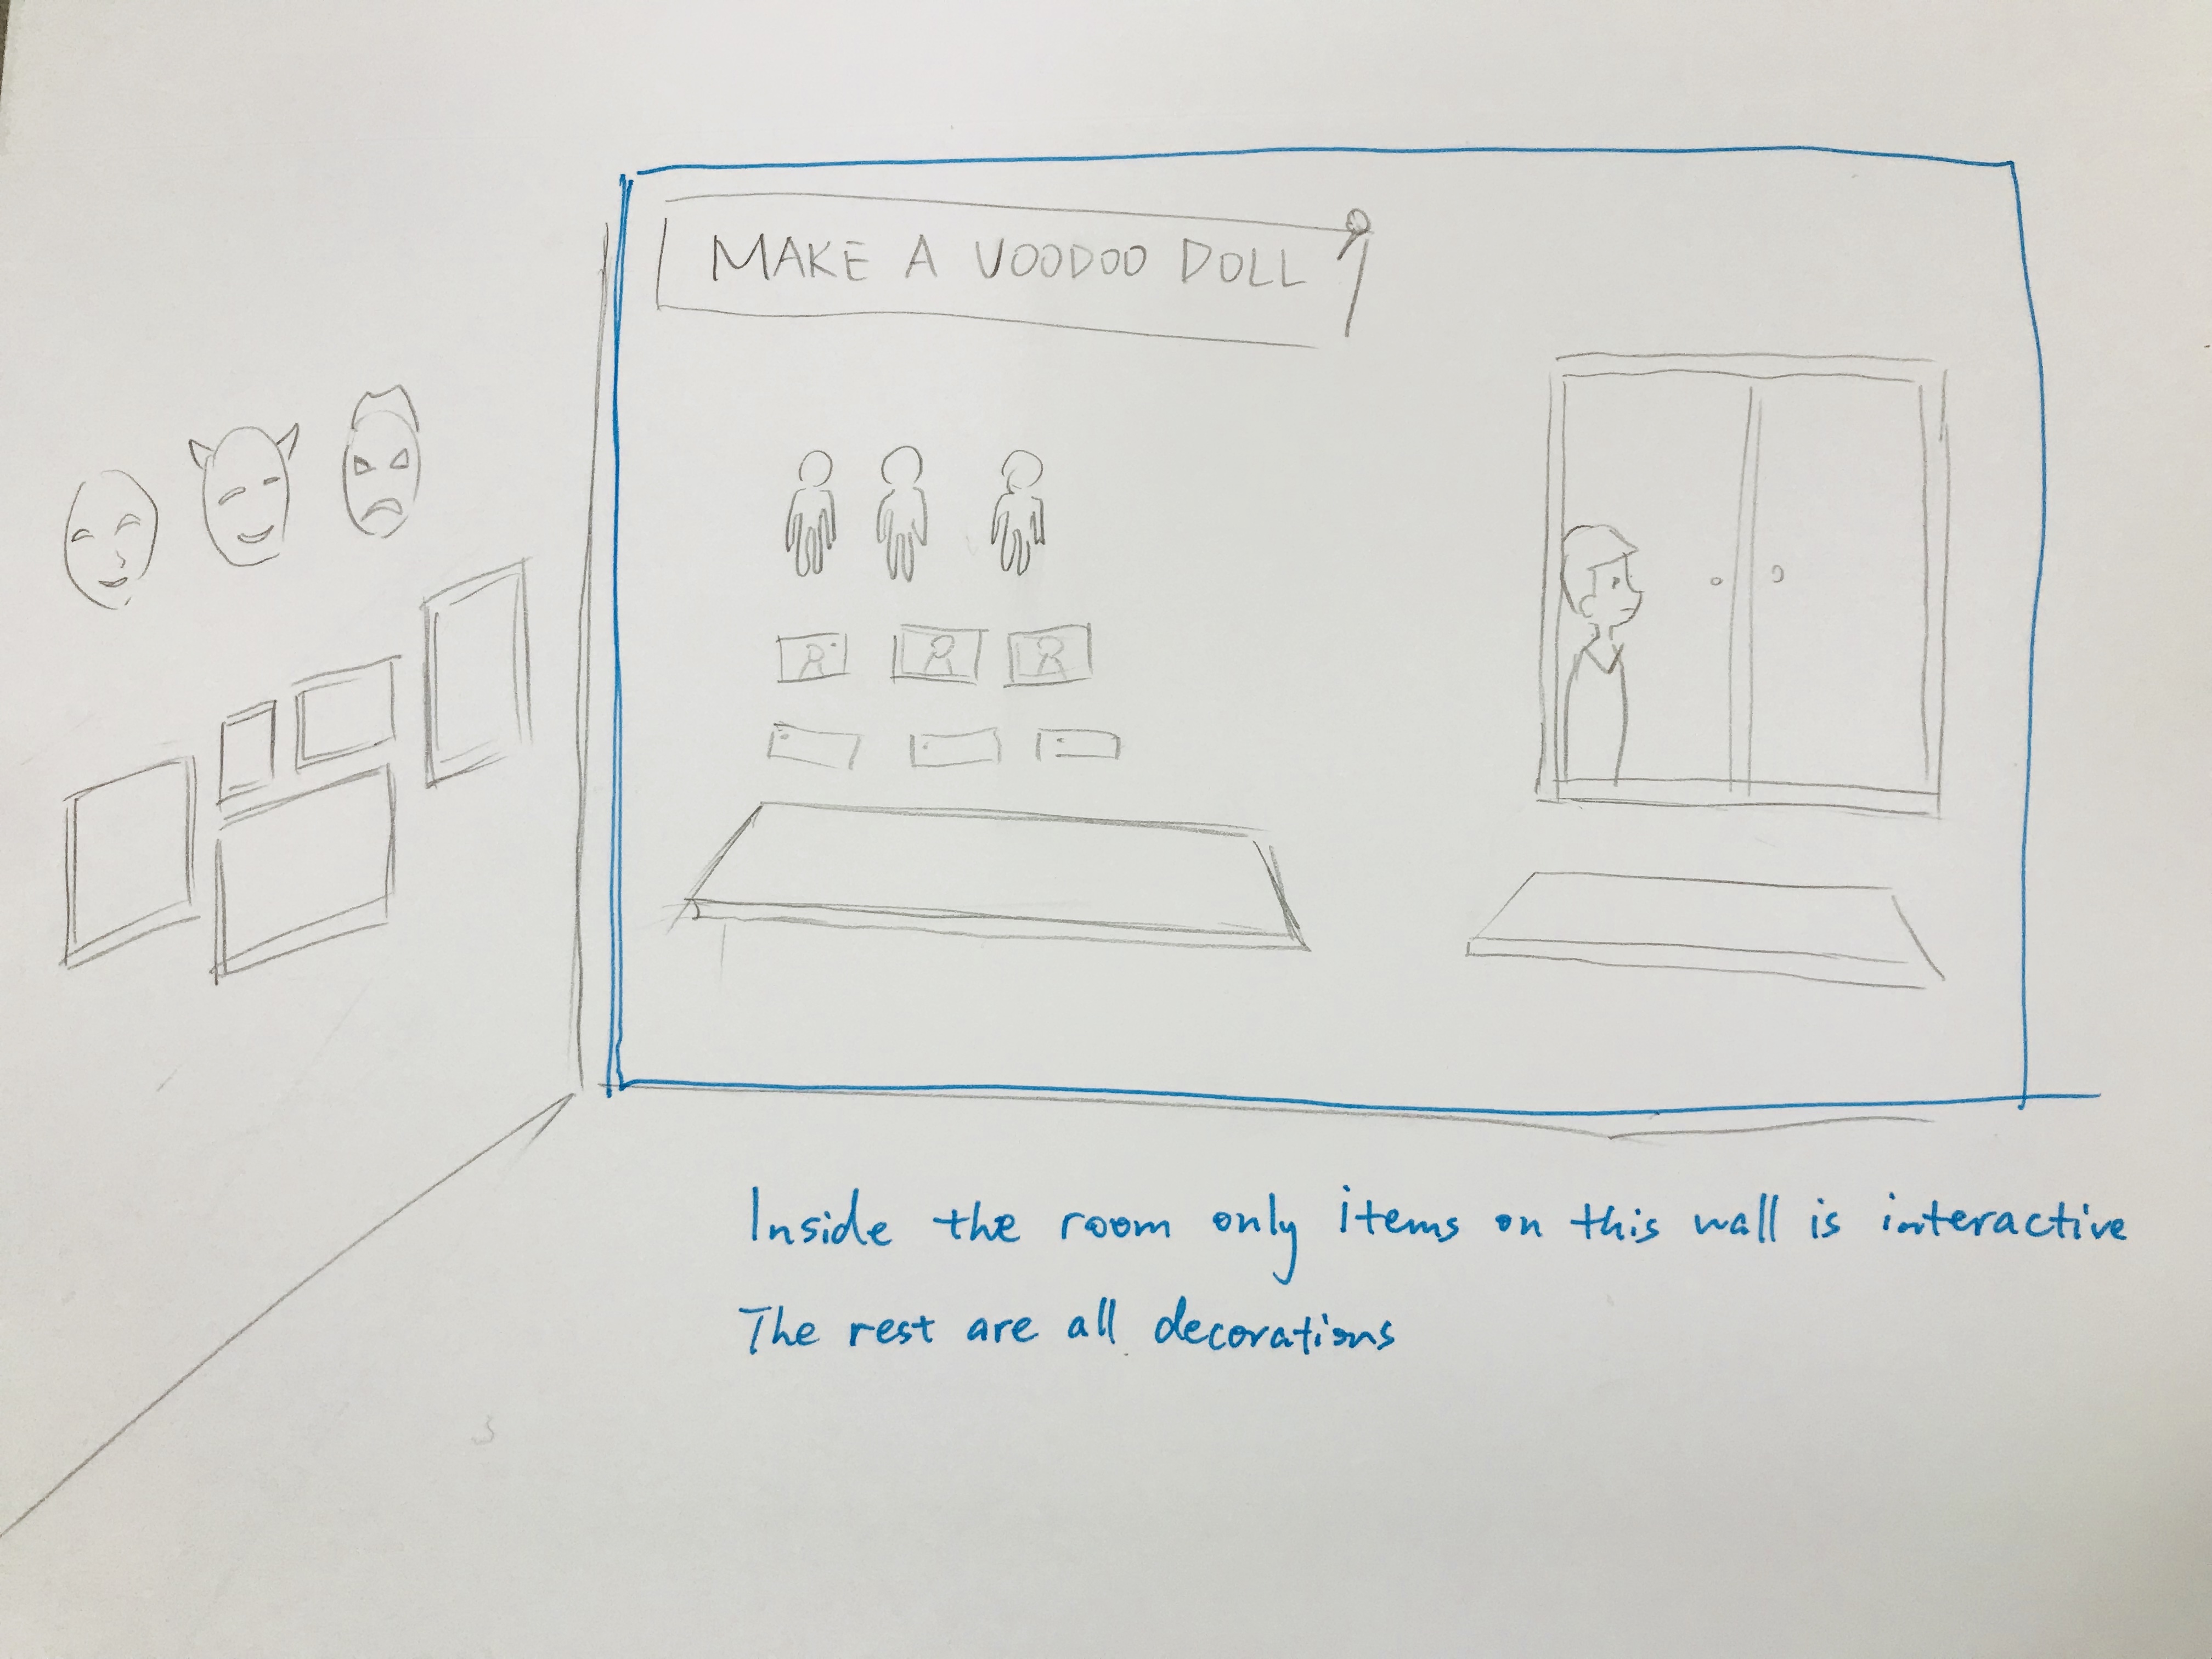 MAKE A VOODOO DOLL
Inside the room only items on this wall is interactive
The rest are all decorations
3